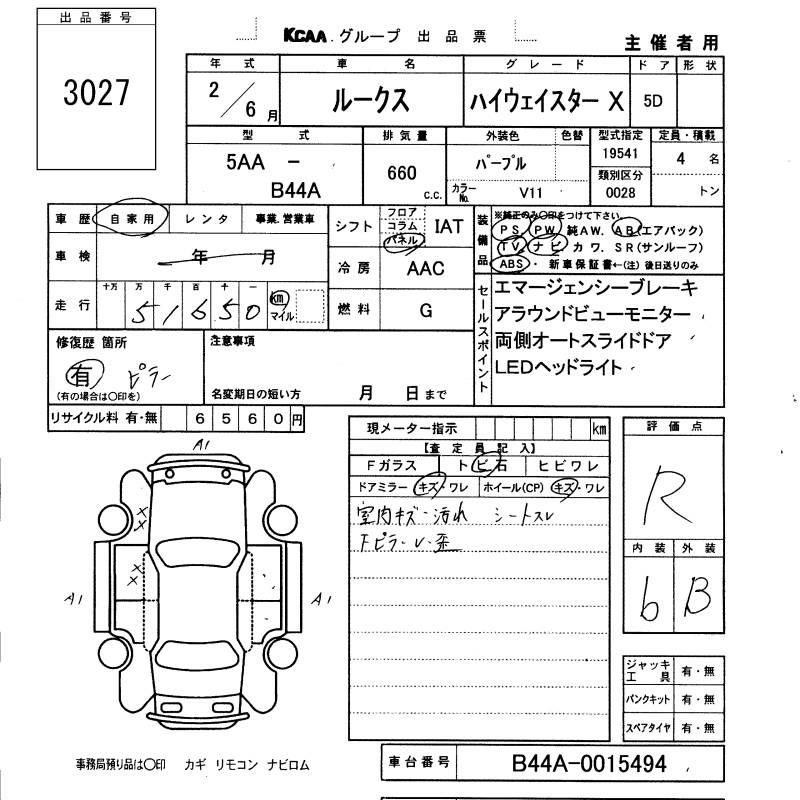 出品番号
3027
KCAA.グループ 出品票
主催者用
年式 車名 グレード ドア 形状
2/6月 ルークス ハイウェイスター X 5D
型式 排気量 外装色 色替 型式指定 定員・積載
5AA - B44A 660 c.c. パープル 19541 4 名
カラーNo. V11 類別区分 0028 トン
車歴 自家用 レンタ 事業.営業車
シフト フロア コラム パネル IAT
装備品 ※純正のみ〇印をつけて下さい。
PS. PW. 純AW. AB(エアバック)
TV. ナビ. カワ. SR(サンルーフ)
ABS・ 新車保証書←(注)後日送りのみ
車検 年 月
冷房 AAC
走行 十万 万 千 百 十 一
51650 km マイル
燃料 G
セールスポイント
エマージェンシーブレーキ
アラウンドビューモニター
両側オートスライドドア
LEDヘッドライト
修復歴 箇所
有 ピラー
(有の場合は〇印を)
注意事項
名変期日の短い方 月 日まで
リサイクル料 有・無 6560円
現メーター指示 km
【査定員記入】
Fガラス トビ石 ヒビワレ
ドアミラー キズ・ワレ ホイール(CP) キズ・ワレ
室内キズ・汚れ シートスレ
評価点
R
内装 外装
6 B
A1
A1
A1
ジャッキ 工具 有・無
パンクキット 有・無
スペアタイヤ 有・無
事務局預り品は〇印 カギ リモコン ナビロム
車台番号 B44A-0015494